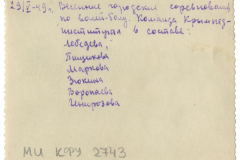 23/V-49г. Весенние городские соревнования
по волей-болу. Команда Крымпед-
института в составе:
Лебедева,
Пищикова
Маркова
Зюкина
Воронаева
МИ КФРУ 2743